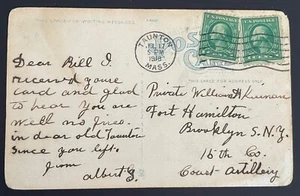 THIS SPACE FOR WRITING MESSAGES
POST
TAUNTON
JUL 17
5 PM
1918
MASS.
U.S. POSTAGE
U.S. POSTAGE
THIS SPACE FOR ADDRESS ONLY
Dear Bill I
received youre
card and glad
to hear you are
well no
in dear old Taunton
Since you left
from
Albert
Private William H
Fort Hamilton
Brooklyn S. N.Y.
15th Co.
Coast Artillery